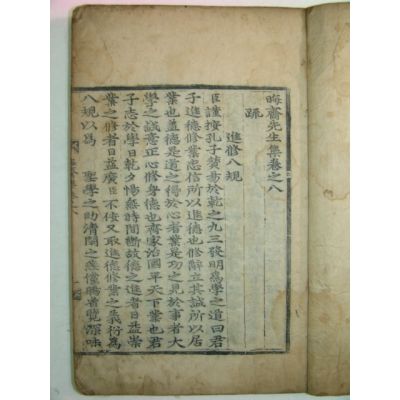 晦齋先生集卷之八
疏
進修八規
臣謹按孔子贊易於乾之九三發明爲學之道曰君
子進德修業忠信所以進德也修辭立其誠所以居
業也盖德是道之得於心者業是功之見於事者大
學之誠意正心修身德也齊家治國平天下業也君
子志於學日乾夕惕無時間斷故德之進者日益崇
業之修者日益廣臣不佞又取進德修業之義衍爲
八規以爲 聖學之助清閒之燕儻賜睿覽深味